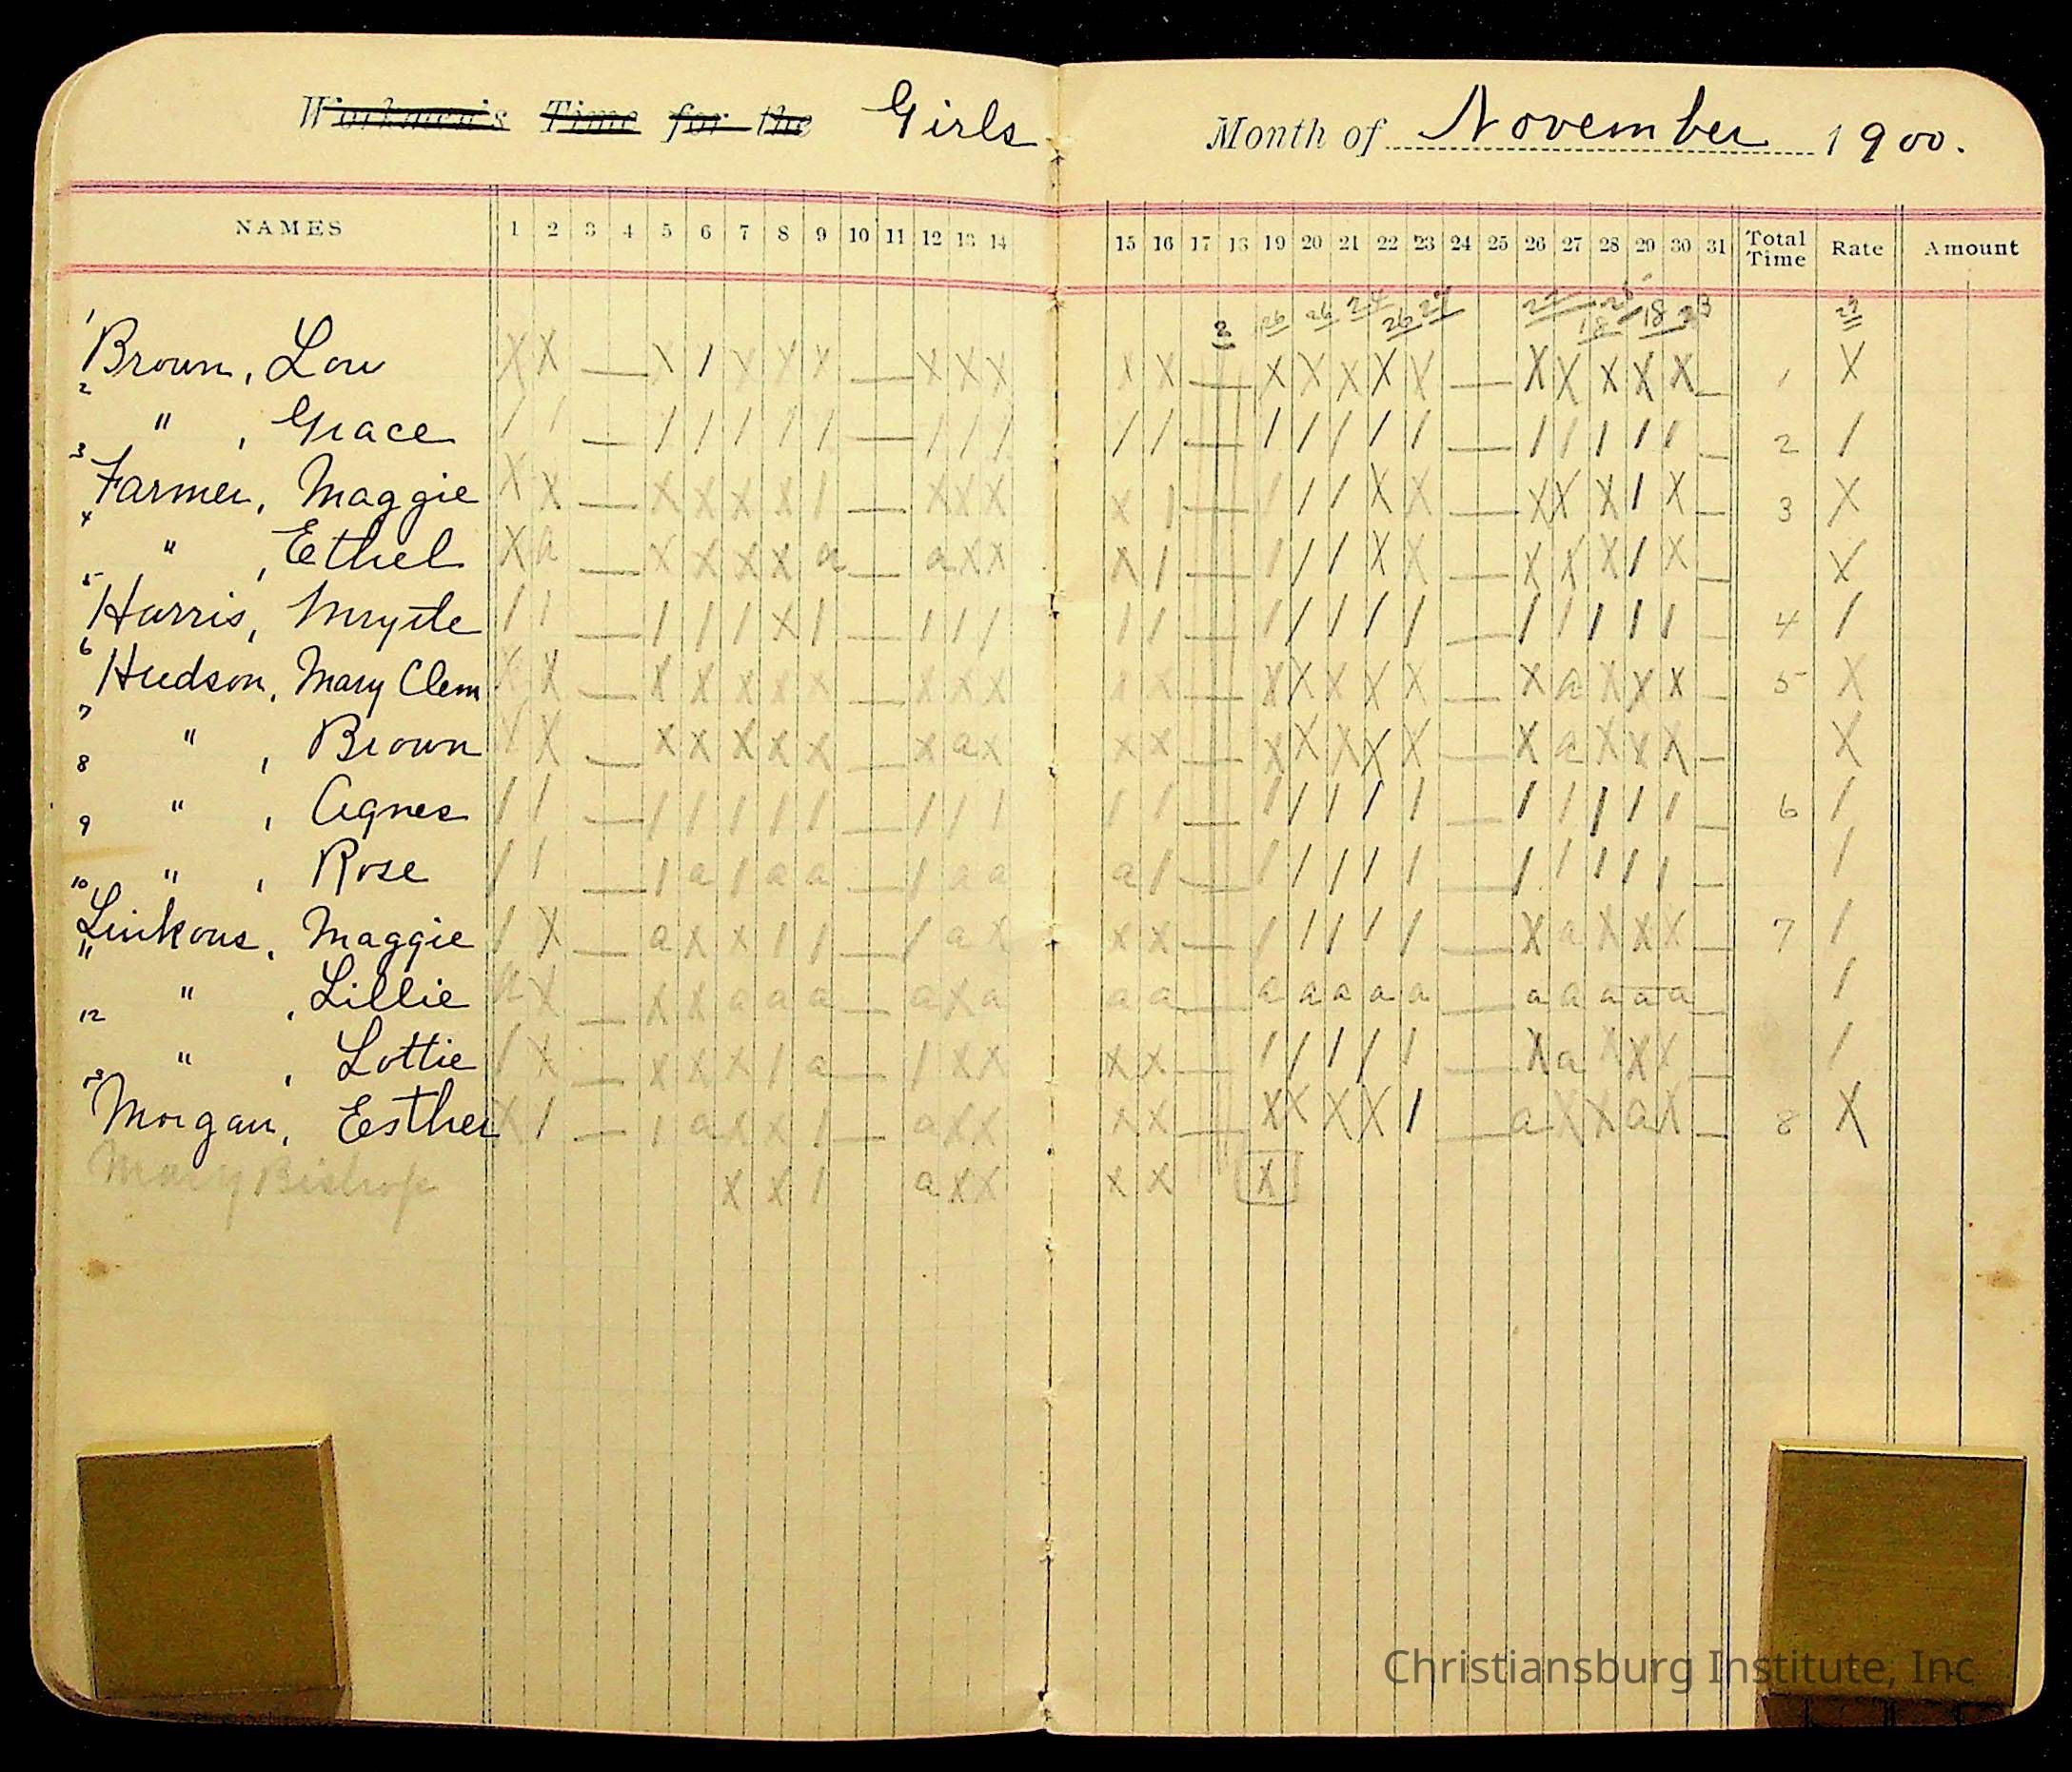 Workmen's Time for the Girls
Month of November 1900.
NAMES 1 2 3 4 5 6 7 8 9 10 11 12 13 14 15 16 17 18 19 20 21 22 23 24 25 26 27 28 29 30 31 Total Time Rate Amount
2 26 26 24 26 27 18 18 23
1 Brown, Lou X X — X / X X X — X X X X X — X X X X X — X X X X X — 1 X
2 " , Grace / / — / / / / / — / / / / / — / / / / / — / / / / / — 2 /
3 Farmer, Maggie X X — X X X X / — X X X X / — / / / X X — X X X / X — 3 X
4 " , Ethel X a — X X X X a — a X X X / — / / / X X — X X X / X — X
5 Harris, Mrytle / / — / / / X / — / / / / / — / / / / / — / / / / / — 4 /
6 Hudson, Mary Clem X X — X X X X X — X X X X X — X X X X X — X a X X X — 5 X
7 " , Brown X X — X X X X X — X a X X X — X X X X X — X a X X X — X
8 " , Agnes / / — / / / / / — / / / / / — / / / / / — / / / / / — 6 /
9 " , Rose / / — / a / a a — / a a a / — / / / / / — / / / / / — /
10 Linkous, Maggie / X — a X X / / — / a X X X — / / / / / — X a X X X — 7 /
11 " , Lillie a X — X X a a a — a X a a a — a a a a a — a a a a a — /
12 " , Lottie / X — X X X / a — / X X X X — / / / / / — X a X X X — /
13 Morgan, Eesther X / — / a X X / — a X X X X — X X X X / — a X X a X — 8 X
Mary Bishop X X / a X X X X X
Christiansburg Institute, Inc